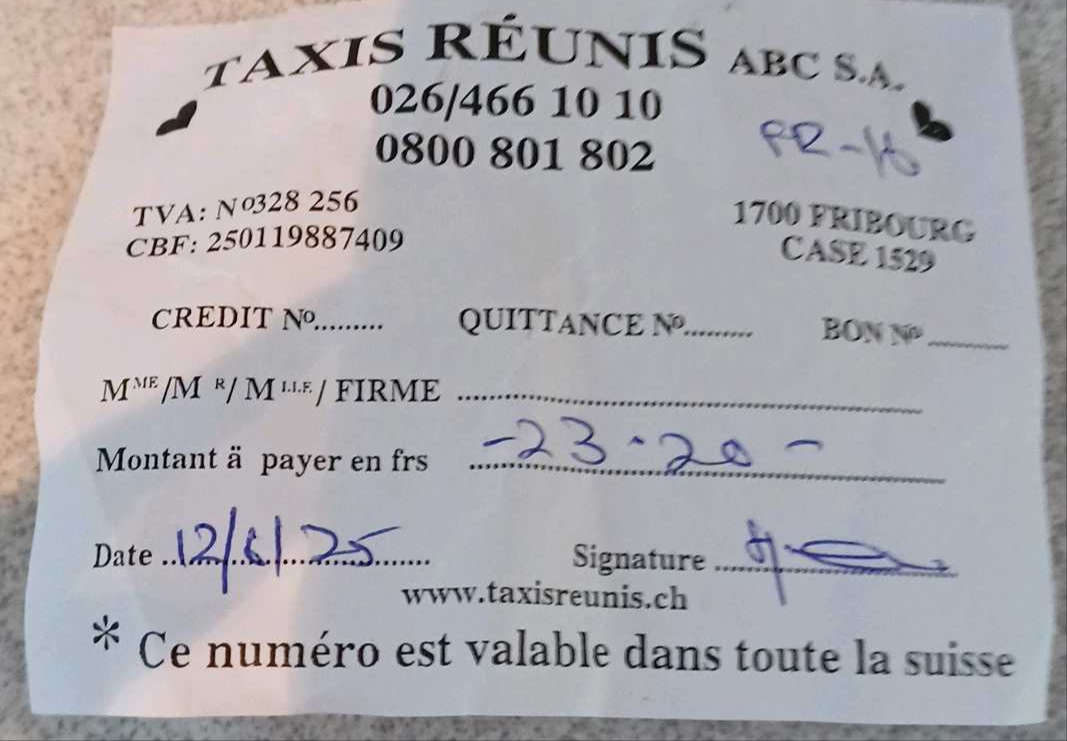 TAXIS RÉUNIS ABC S.A.
026/466 10 10
0800 801 802
TVA: Nº328 256
CBF: 250119887409
1700 FRIBOURG
CASE 1529
CREDIT Nº......... QUITTANCE Nº......... BON Nº
MME/M R/ MLLE/ FIRME
Montant ä payer en frs -23.20-
Date 12/6/25 Signature
www.taxisreunis.ch
* Ce numéro est valable dans toute la suisse